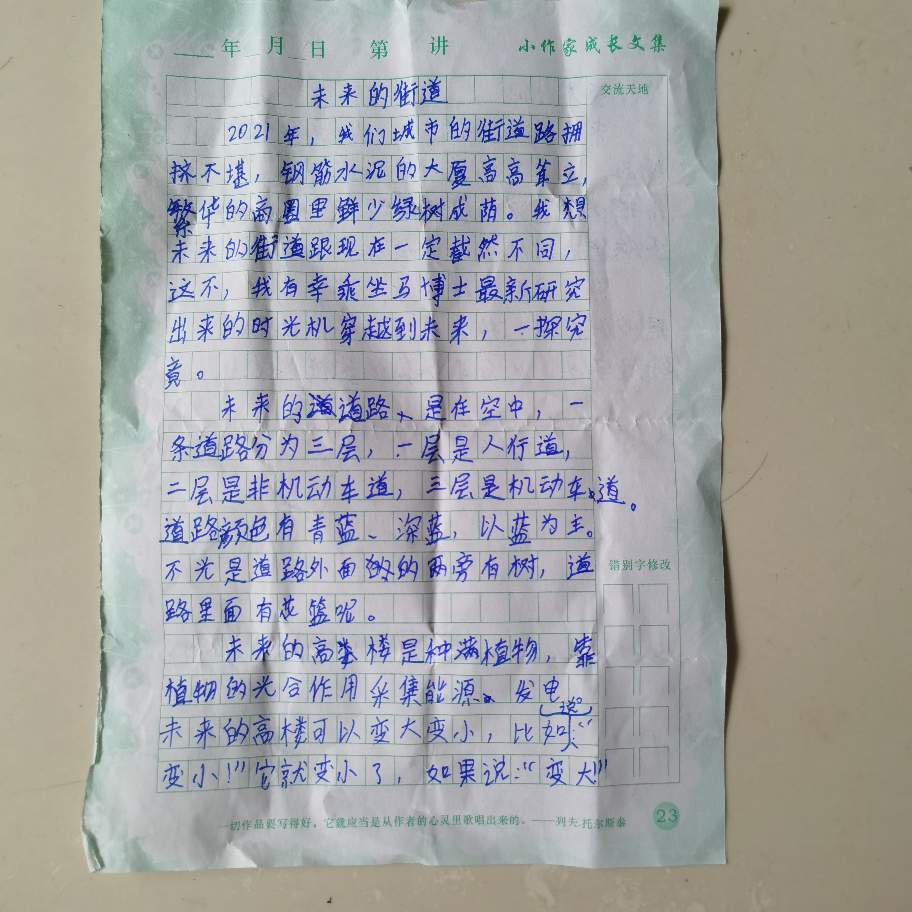 年 月 日 第 讲 小作家成长文集
交流天地
未来的街道
2021年，我们城市的街道路拥
挤不堪，钢筋水泥的大厦高高耸立，
繁华的商圈里鲜少绿树成荫。我想
未来的街道跟现在一定截然不同，
这不，我有幸乘坐马博士最新研究
出来的时光机穿越到未来，一探究
竟。
未来的道路、是在空中，一
条道路分为三层，一层是人行道，
二层是非机动车道，三层是机动车道。
道路颜色有青蓝、深蓝，以蓝为主。
不光是道路外面的两旁有树，道
路里面有花篮呢。
错别字修改
未来的高楼是种满植物，靠
植物的光合作用采集能源、发电。
未来的高楼可以变大变小，比如说：“
变小！”它就变小了，如果说：“变大！”
一切作品要写得好，它就应当是从作者的心灵里歌唱出来的。——列夫.托尔斯泰
23